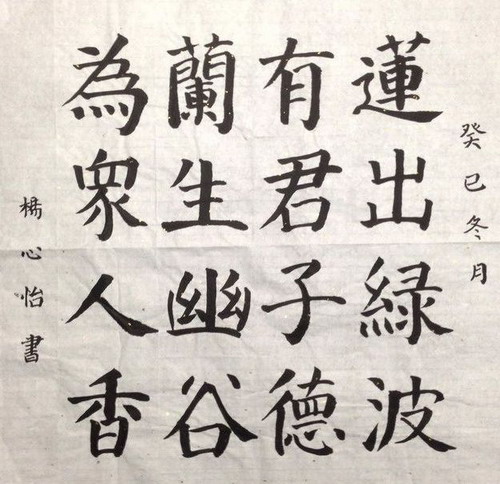 癸巳冬月
蓮出綠波
有君子德
蘭生幽谷
為眾人香
楊心怡書